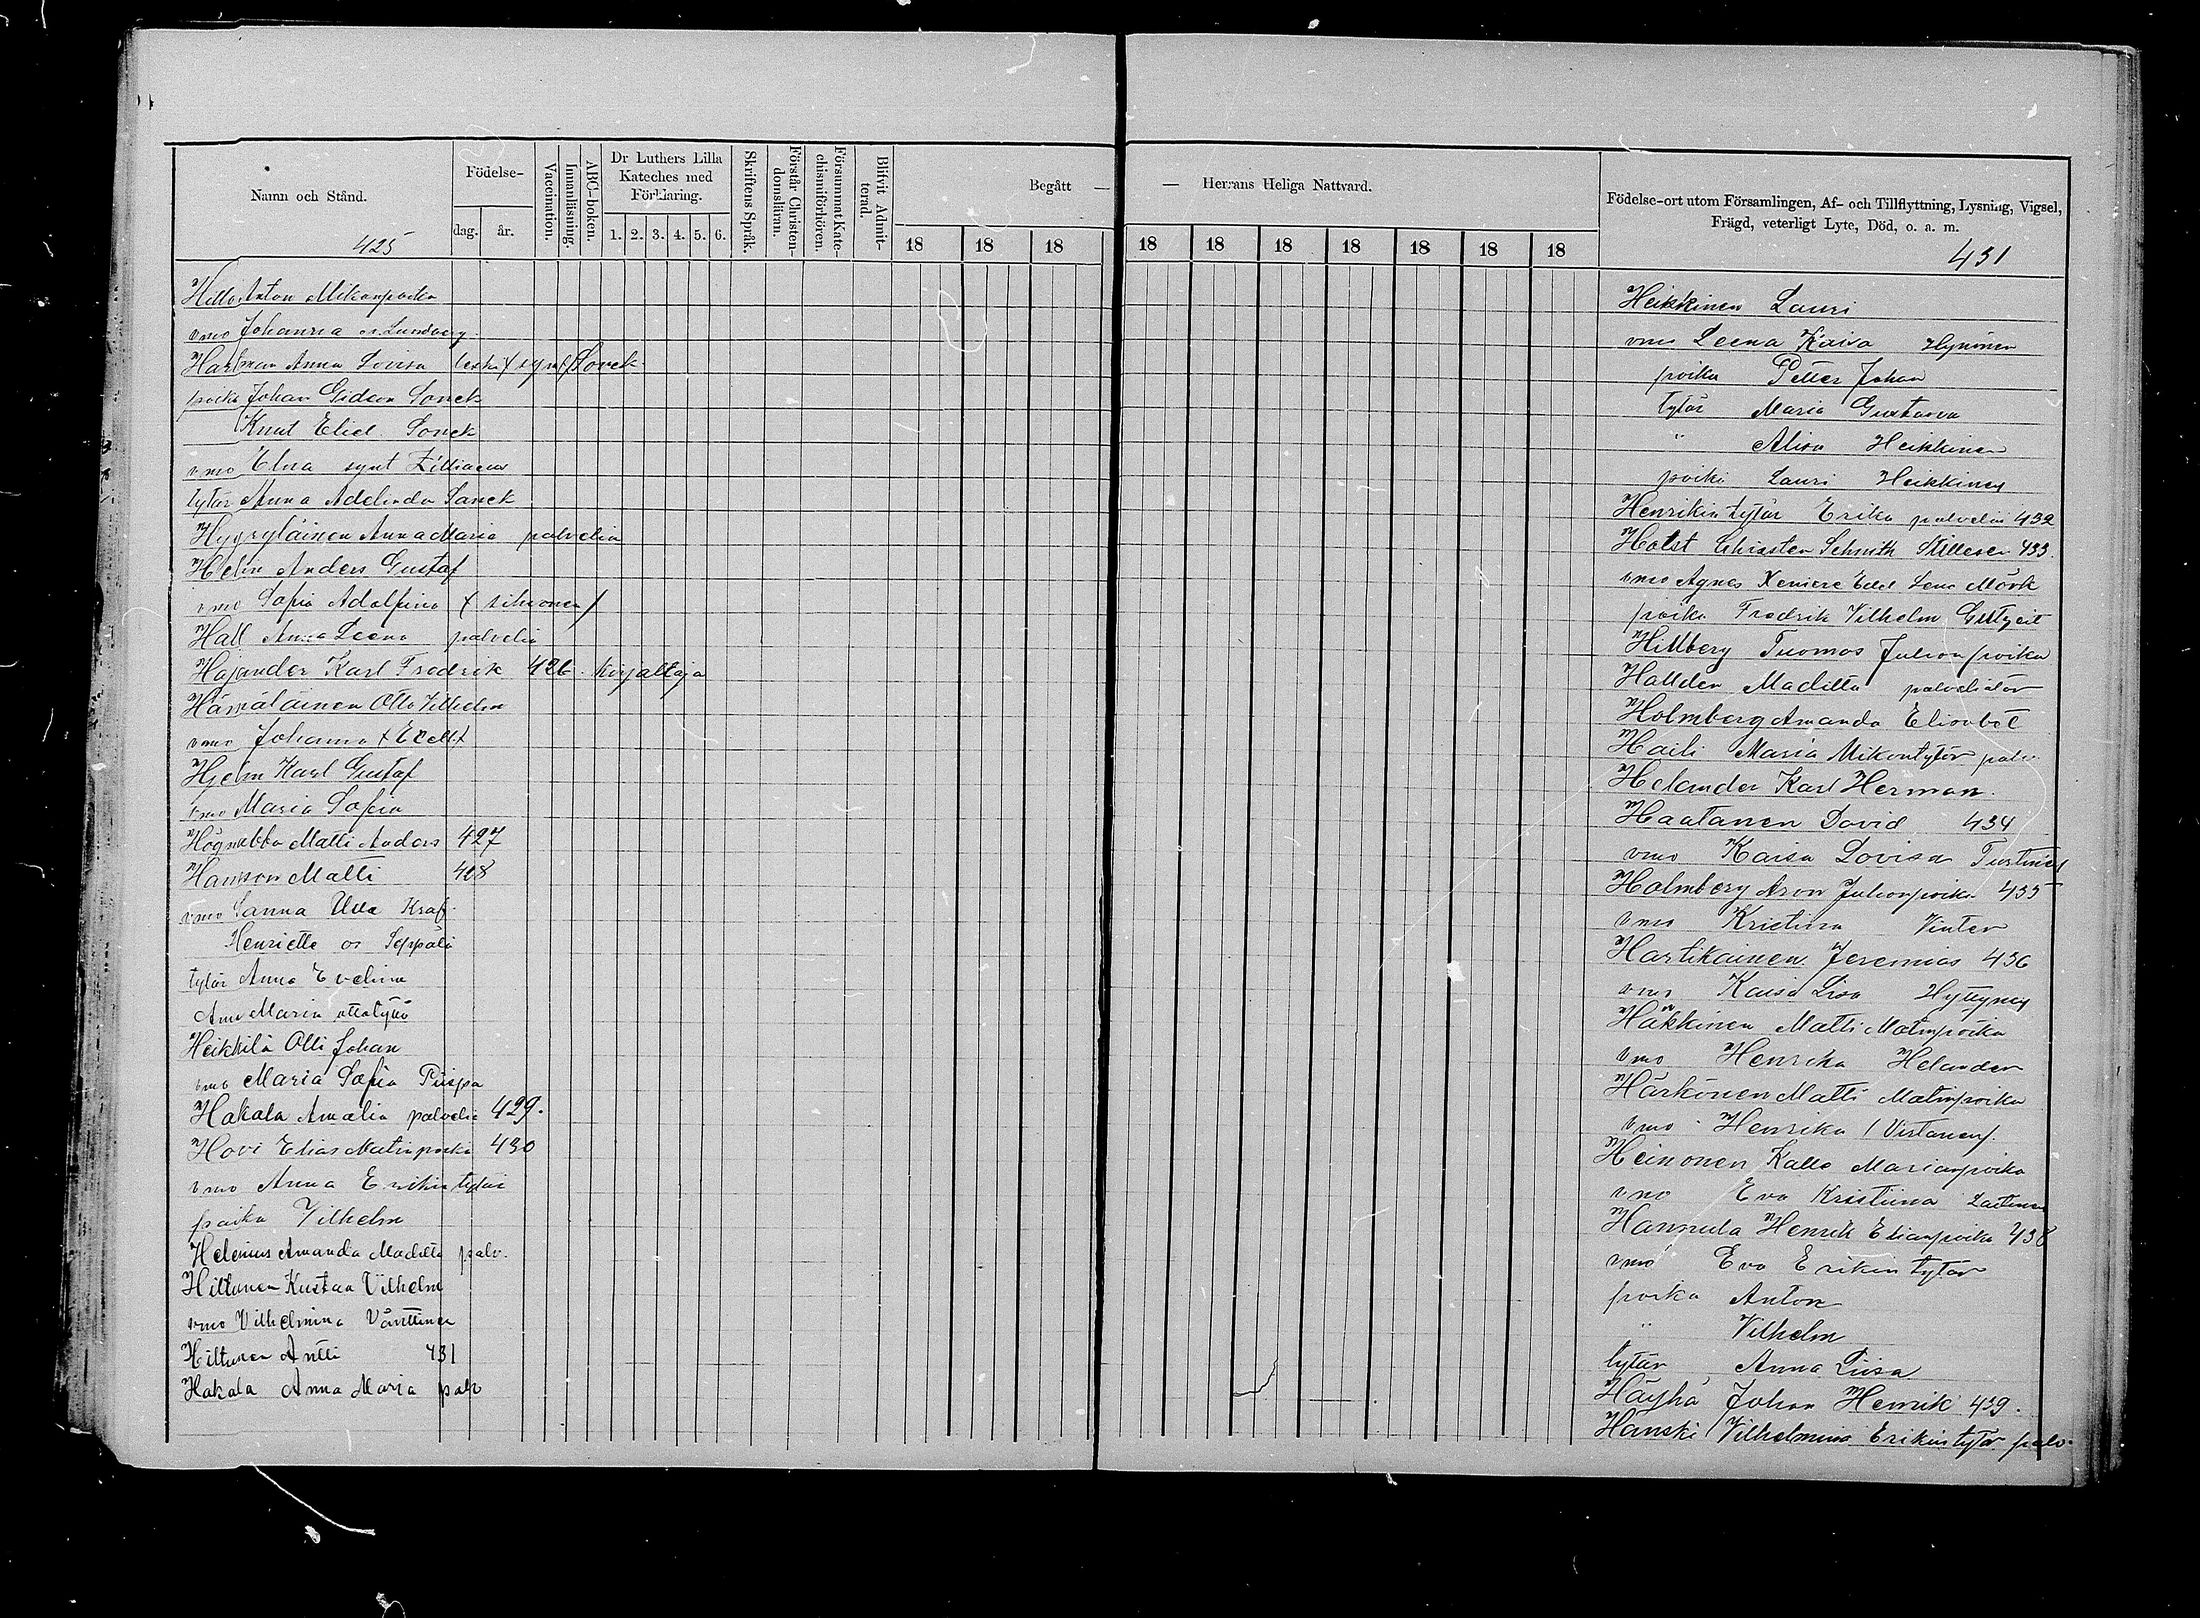 Namn och Stånd.
425
Födelse-
dag. år.
Vaccination.
Innanläsning.
ABC-boken.
Dr Luthers Lilla
Kateches med
Förklaring.
1. 2. 3. 4. 5. 6.
Skriftens Språk.
Förstår Christen-
domsläran.
Försummat Kate-
chismiförhören.
Blifvit Admit-
terad.
Begått — — Herrans Heliga Nattvard.
18 18 18 18 18 18 18 18 18 18
Födelse-ort utom Församlingen, Af- och Tillflyttning, Lysning, Vigsel,
Frägd, veterligt Lyte, Död, o. a. m.
431
Hillo Anton Mikonpoika
vmo Johanna os Lundberg
Hartman Anna Lovisa leski (synt) Sonck
poika Johan Gideon Sonck
Knut Eliel Sonck
vmo Elna synt Zilliacus
tytär Anna Adelinda Sonck
Hyyryläinen Anna Maria palvelia
Helin Anders Gustaf
vmo Sofia Adolfina (Sihvonen)
Hall Anna Leena palvelia
Hajander Karl Fredrik 426. kirjaltaja
Hämäläinen Otto Vilhelm
vmo Johanna
Hjelm Karl Gustaf
vmo Maria Sofia
Högnabba Matti Anders 427
Hanson Matti 428
vmo Sanna Ulla Kraf
Henriette os Seppälä
tytär Anna Evelina
Anna Maria ottotyttö
Heikkilä Olli Johan
vmo Maria Sofia Piispa
Hakala Amalia palvelia 429.
Hovi Elias Matinpoika 430
vmo Anna Erikin tytär
poika Vilhelm
Helenius Amanda Madilta palv.
Hiltunen Kustaa Vilhelm
vmo Vilhelmina Vänttinen
Hiltunen Antti 431
Hakala Anna Maria palv
Heikkinen Lauri
vmo Leena Kaisa Hyninen
poika Petter Johan
tytär Maria Gustava
" Alisa Heikkinen
poika Lauri Heikkinen
Henrikin tytär Erika palvelia 432
Holst Christen Schmith Stillesen 433
vmo Agnes Edel Lena Mörk
poika Fredrik Vilhelm Gutzeit
Hillberg Tuomas Juhonpoika
Hallden Madilta palveliatar
Holmberg Amanda Elisabet
Haili Maria Mikontytär palv.
Helander Karl Herman.
Haatanen David 434
vmo Kaisa Lovisa
Holmberg Aron Juhonpoika 435
vmo Kristina Vinter
Hartikainen Jeremias 436
vmo Kaisa Lisa Hyttynen
Häkkinen Matti Matinpoika
vmo Henrika Helander
Härkönen Matti Matinpoika
vmo Henrika (Virtanen).
Heinonen Kalle Marianpoika
vmo Eva Kristiina Laitinen
Hannula Henrik Elianpoika 438
vmo Eva Erikin tytär
poika Anton
" Vilhelm
tytär Anna Liisa
Häyhä Johan Henrik 439.
Hanski Vilhelmina Erikintytär palv.